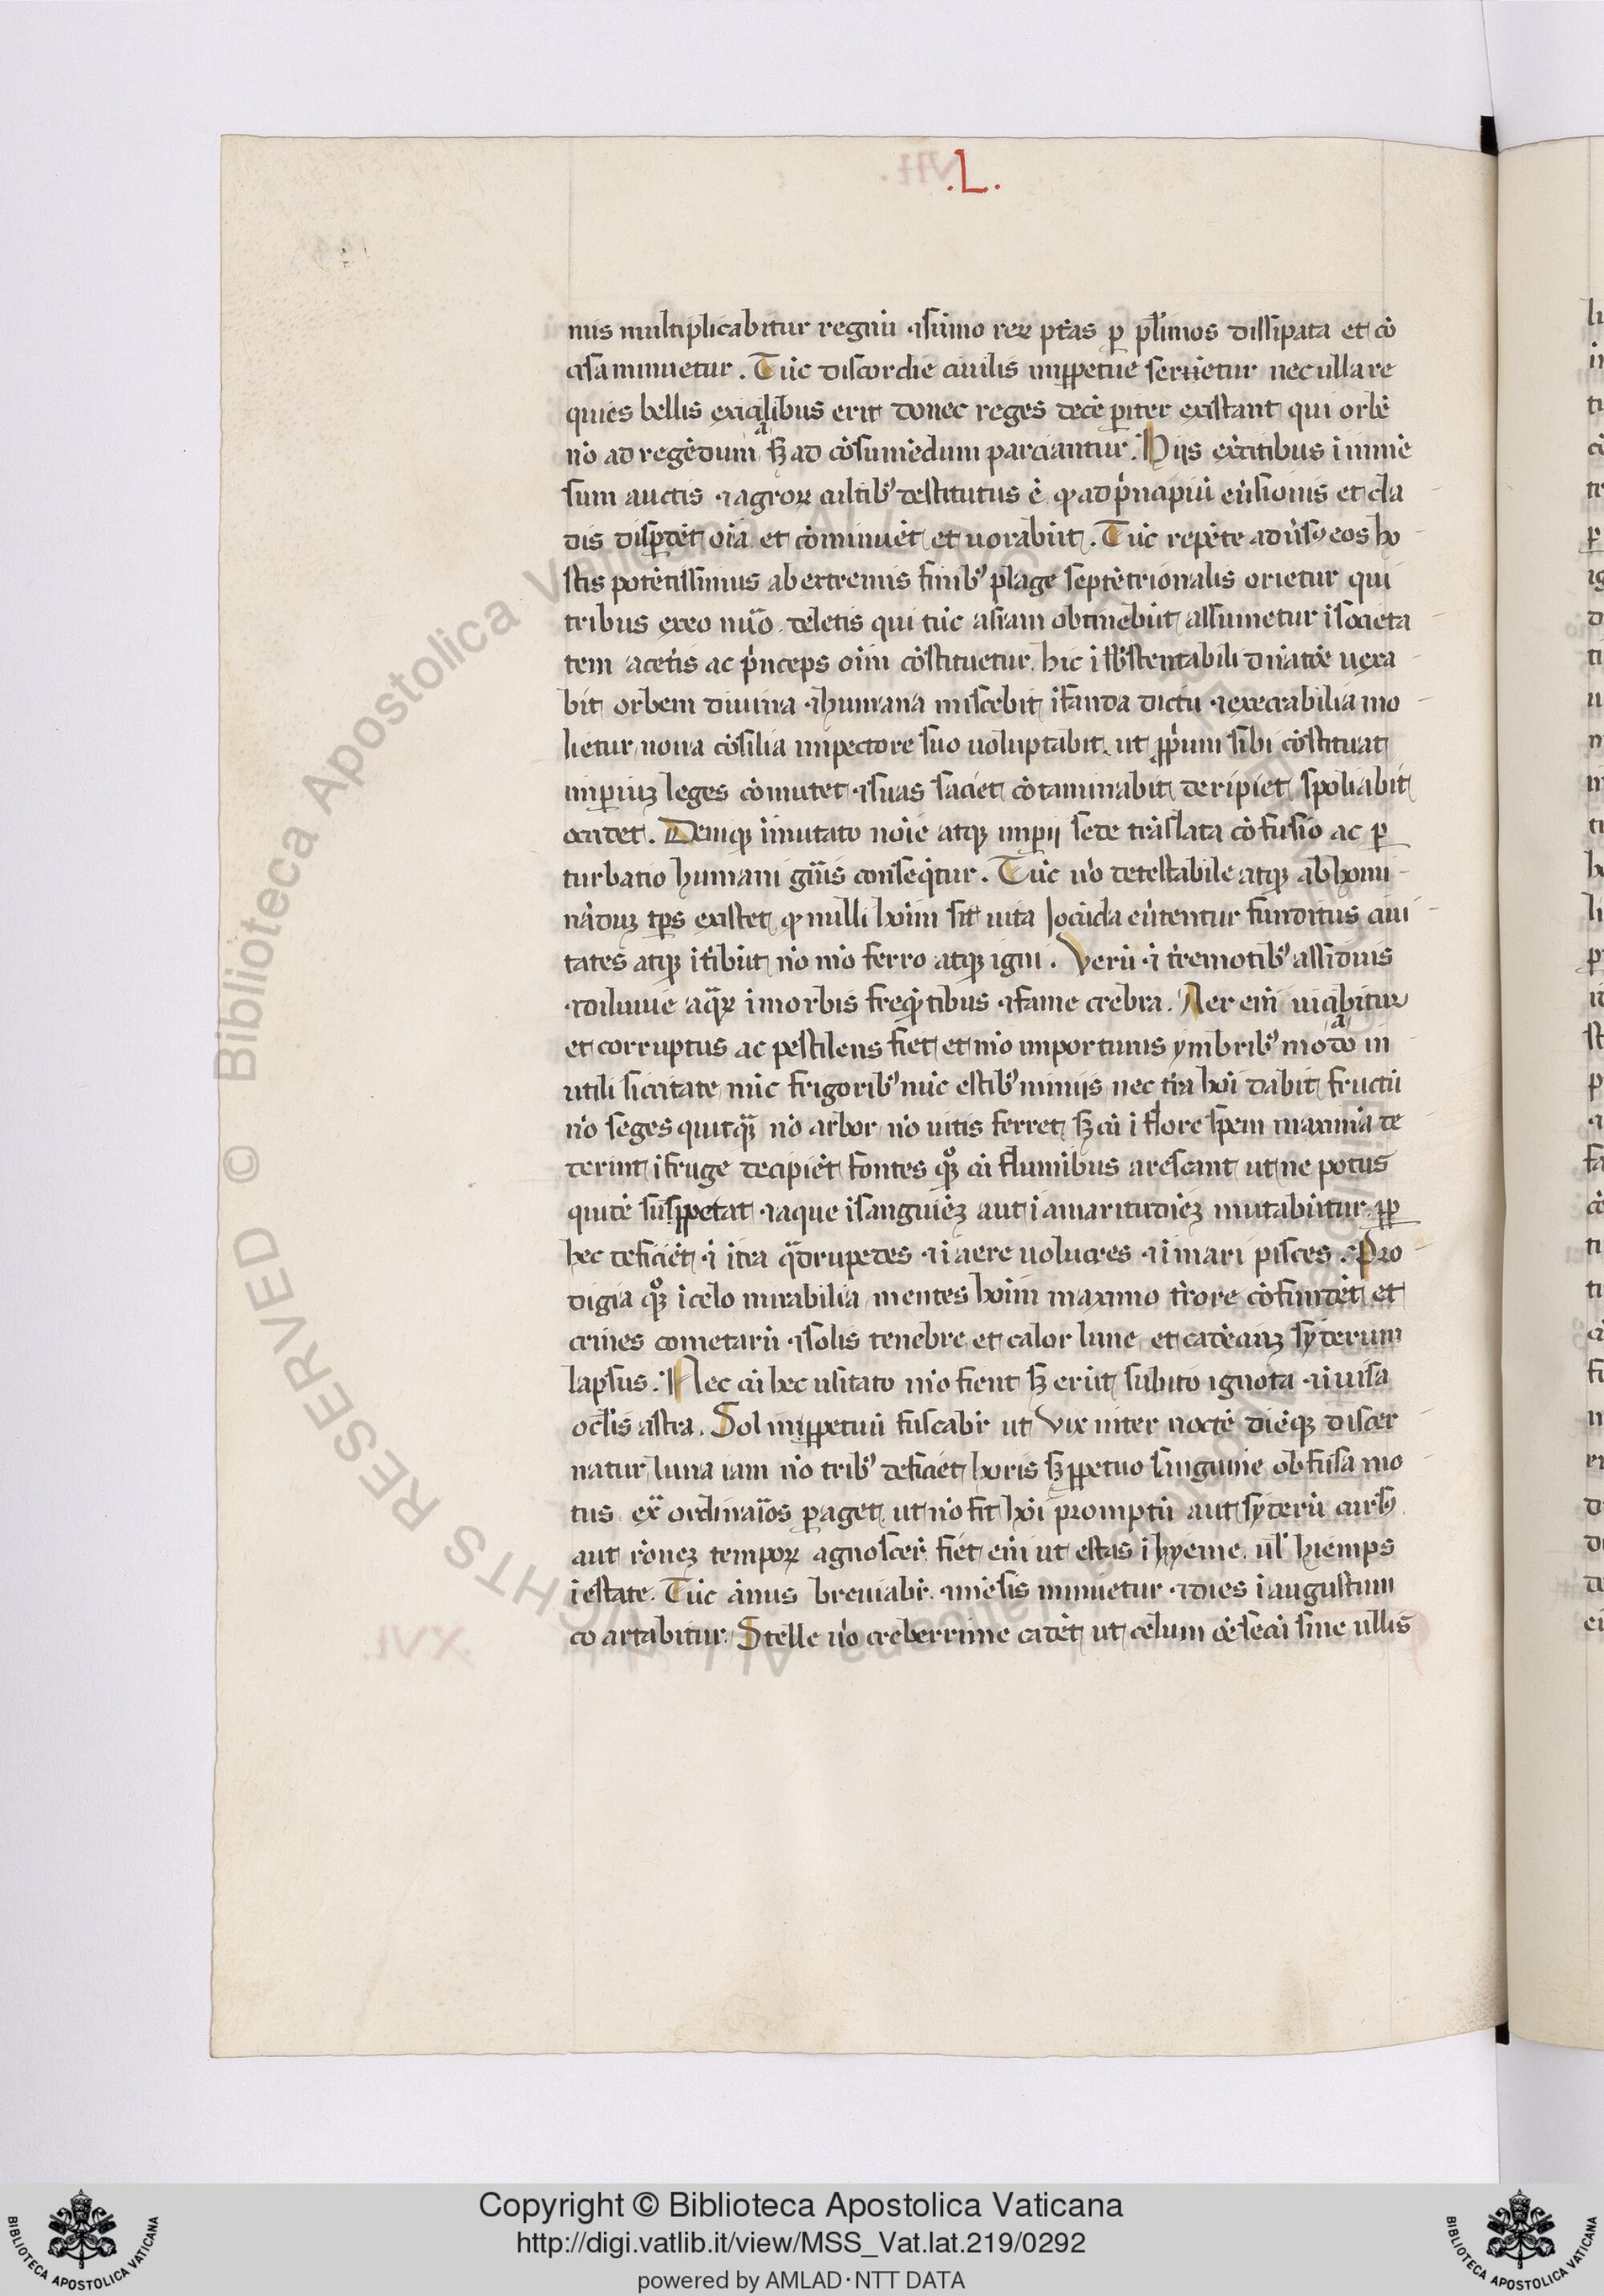 .L.
mis multiplicabitur regnu̇ ⁊ sũmo reꝝ ptãs ꝑ plĩmos dissipata et cõ
cisa minuetur. Tũc discordie ciuilis inꝑpetue seruẽtur nec ulla re
quies bellis exicialibus erit donec reges decẽ pariter existant qui orbẽ
nõ ad regẽdum sꝫ ad cõsumẽdum parciantur. Hiis exẽcitibus ĩ inmẽ
sum auctis ⁊ agroꝝ cultibꝰ destitutus ẽ qꝫ ad pͥncipiũ euẽsionis et cla
dis disꝑdẽt oĩa et cõminuẽt et uorabũt. Tũc repẽte aduẽsꝰ eos ho
stis potẽtissimus ab extremis finibꝰ plage septẽtrionalis orietur qui
tribus ex eo nũo deletis qui tũc asiam obtinebũt assumetur ĩ societa
tem a ceteris ac pͥnceps oĩm cõstituetur. hic ĩsubstentabili dñatiõe uexa
bit orbem diuina ⁊ humana miscebit ĩfanda dictu ⁊ execrabilia mo
lietur noua cõsilia in pectore suo uoluptabit ut ꝓprium sibi cõstituat
imꝑiuꝫ leges cõmutet ⁊ suas saciet cõtaminabit deripiet spoliabit
occidet. Deniqꝫ ĩmutato noĩe atqꝫ imꝑij sede trãslata cõfusio ac ꝑ
turbatio humani gñis conseqͥtur. Tũc uõ detestabile atqꝫ abhomi
nãduꝫ tꝑs existet qꝫ nulli hoĩm sit uita Jocũda euẽtentur funditus ciui
tates atqꝫ ĩtibũt nõ mõ ferro atqꝫ igni. Verũ ⁊ ĩ tẽremotibꝰ assiduis
⁊ diluuie aqͣꝝ ĩ morbis freqũtibus ⁊ fame crebra. Aer eĩ uiciabitur
et corruptus ac pestilens fiet et mõ importunis ymbribꝰ modo in
utili siccitate nũc frigoribꝰ nũc estibꝰ nimijs nec tẽra hoĩ dabit fructũ
nõ seges quitqͣꝫ nõ arbor nõ uitis ferret sꝫ cũ ĩ flore spem maximã de
derint ĩ fruge decipiẽt fontes qͦꝫ cũ fluminibus arescent ut ne potus
quidẽ supꝑetat ⁊ aque ĩ sanguiẽꝫ aut ĩ amaritudĩeꝫ mutabũtur ꝓp
hec deficiẽt ⁊ ĩ tẽra qͣdrupedes ⁊ ĩ aere uolucres ⁊ ĩ mari pisces. Pro
digia qͦꝫ ĩ celo mirabilia mentes hoĩm maximo tẽrore cõfundẽt et
crines cometarũ ⁊ solis tenebre et calor lune et cadẽciuꝫ syderum
lapsus. Nec cũ hec usitato mõ fient sꝫ erũt subito ignota ⁊ ĩuisa
oclĩs astra. Sol inꝑpetuũ fuscabiͬ ut Vix inter noctẽ diẽqꝫ discer
natur luna iam nõ tribꝰ deficiet horis sꝫ ꝑpetuo sanguine obfusa mo
tus exͣ ordinaĩos ꝑaget ut nõ sit hoĩ promptũ aut syderũ cursꝰ
aut rõneꝫ tempoꝝ agnosceͬ fiet eĩ ut estas ĩ hyeme ul̃ hiemps
ĩ estate. Tũc ãnus breuiabiͬ ⁊ mẽsis minuetur ⁊ dies ĩ angustum
coartabitur. Stelle uõ creberrime cadẽt ut celum cẽ secũ sine ullis
Copyright © Biblioteca Apostolica Vaticana
http://digi.vatlib.it/view/MSS_Vat.lat.219/0292
powered by AMLAD·NTT DATA